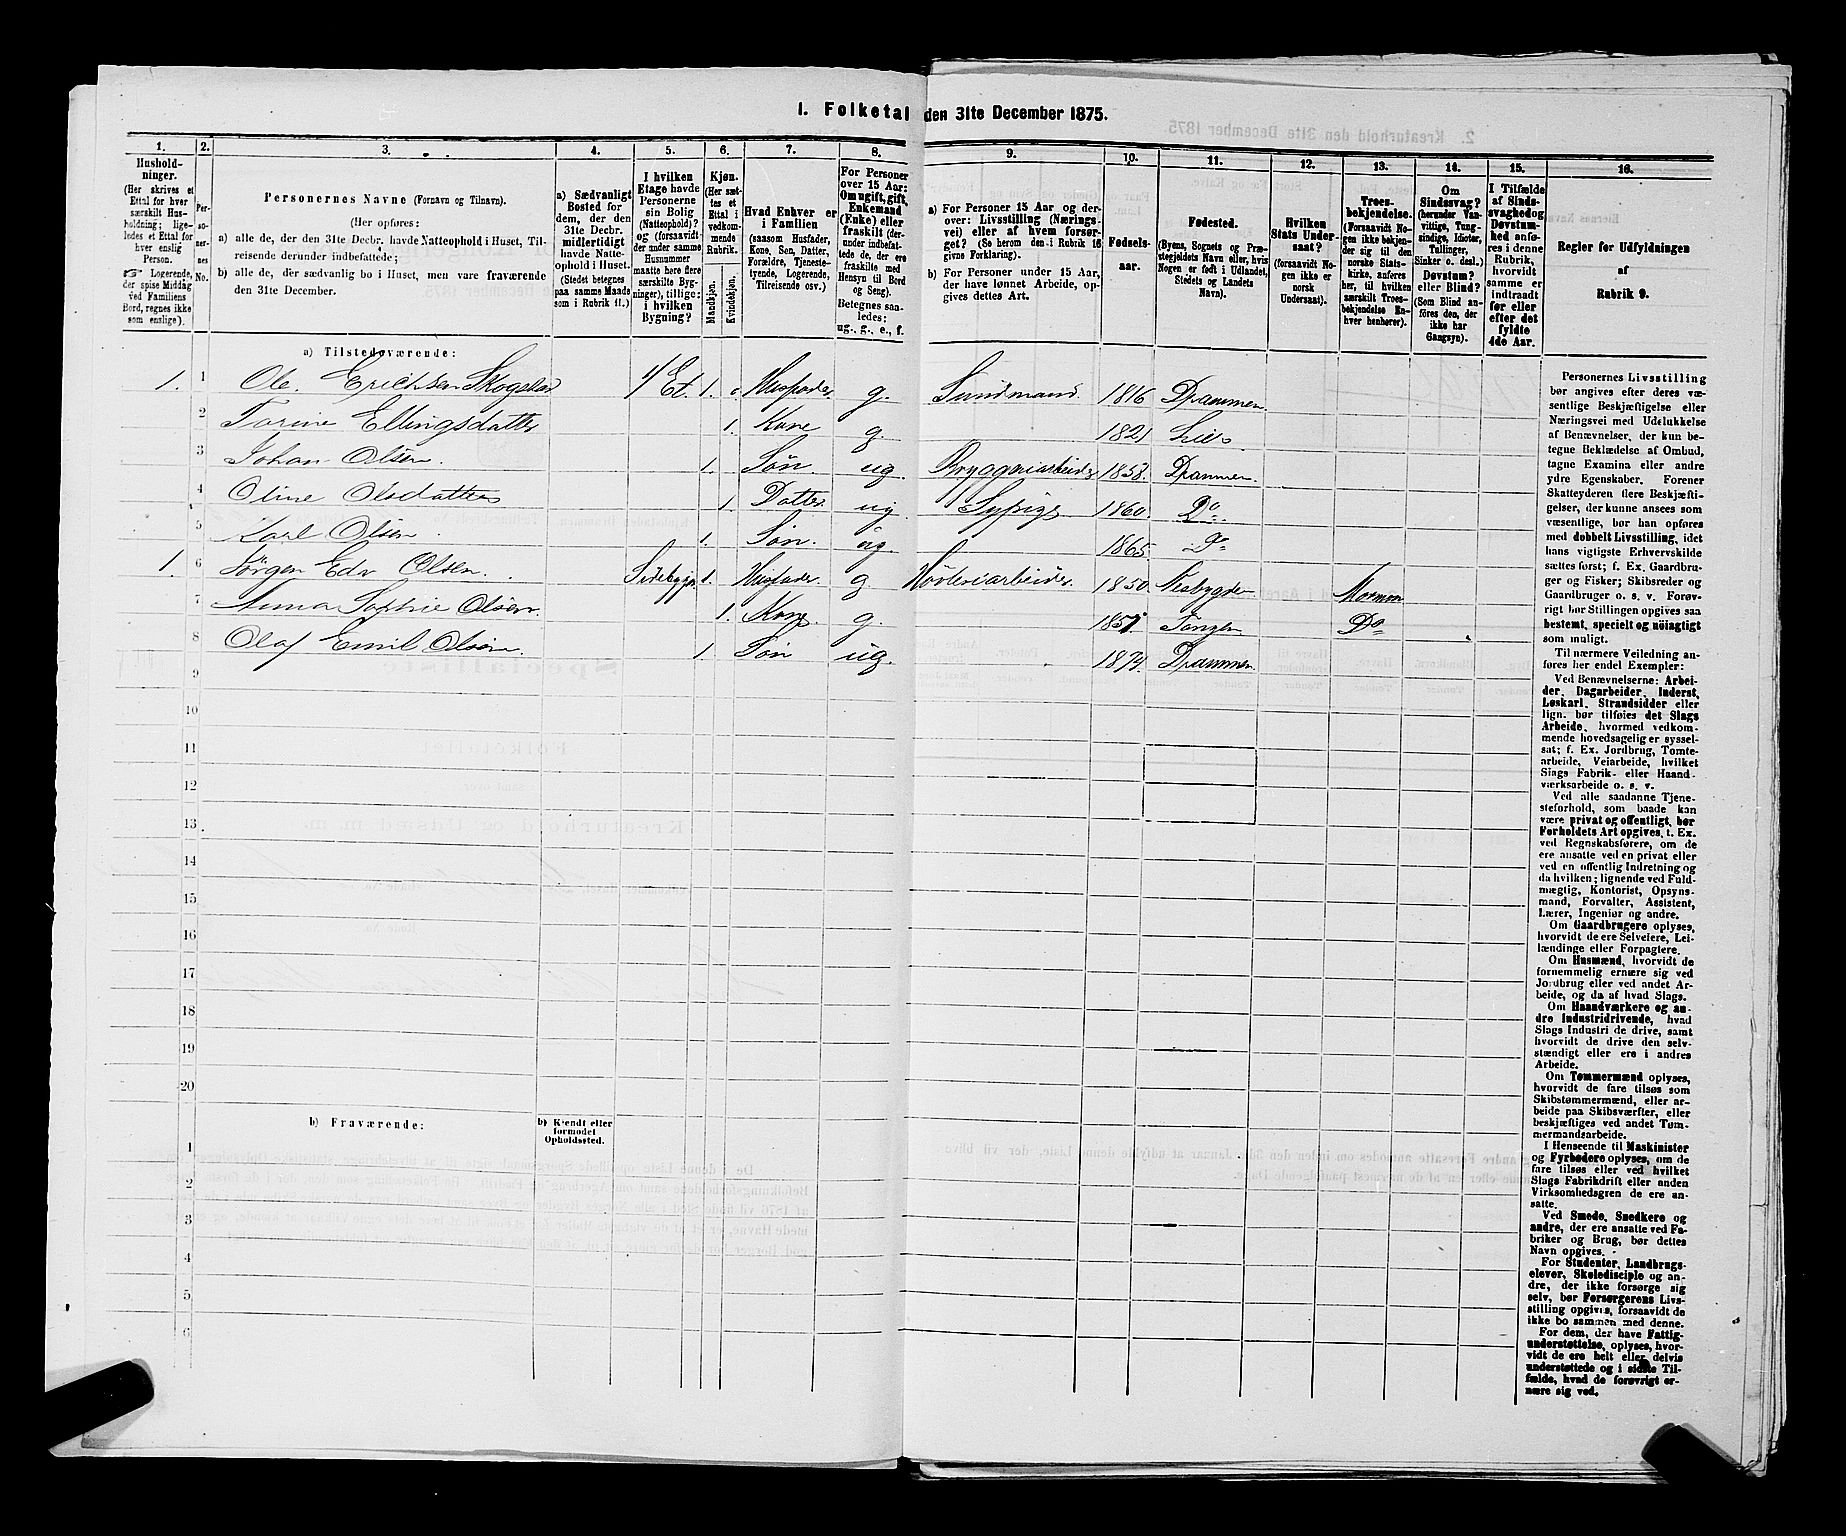 1. Folketal den 31te December 1875.
1. 2. 3. 4. 5. 6. 7. 8. 9. 10. 11. 12. 13. 14. 15. 16.
Hushold-
ninger.
(Her skrives et
Ettal for hver
særskilt Hus-
holdning; lige-
ledes et Ettal for
hver enslig
Person.
☞ Logerende,
der spise Middag
ved Familiens
Bord, regnes ikke
som enslige).
Per-
so-
ner-
nes
No.
Personernes Navne (Fornavn og Tilnavn).
(Her opføres:
a) alle de, der den 31te Decbr. havde Natteophold i Huset, Til-
reisende derunder indbefattede;
b) alle de, der sædvanlig bo i Huset, men vare fraværende
den 31te December.
a) Sædvanligt
Bosted for
dem, der den
31te Decbr.
midlertidigt
havde Natte-
ophold i Huset.
(Stedet betegnes
paa samme Maade
som i Rubrik 11.)
I hvilken
Etage havde
Personerne
sin Bolig
(Natteophold)?
og (forsaavidt
der under samme
Husnummer
maatte høre flere
særskilte Byg-
ninger), tillige:
i hvilken
Bygning?
Kjøn.
(Her sæt-
tes et
Ettal i
vedkom-
mende
Rubrik.
Mandkjøn.
Kvindekjøn.
Hvad Enhver er
i Familien
(saasom Husfader,
Kone, Søn, Datter,
Forældre, Tjeneste-
tyende, Logerende,
Tilreisende osv.)
For Personer
over 15 Aar:
Om ugift, gift,
Enkemand
(Enke) eller
fraskilt (der-
under indbefat-
tede de, der ere
fraskilte med
Hensyn til Bord
og Seng).
Betegnes saa-
ledes:
ug., g., e., f.
a) For Personer 15 Aar og der-
over: Livsstilling (Nærings-
vei) eller af hvem forsør-
get? (Se herom den i Rubrik 16
givne Forklaring).
b) For Personer under 15 Aar,
der have lønnet Arbeide, op-
gives dettes Art.
Fødsels-
aar.
Fødested.
(Byens, Sognets og Præ-
stegjeldets Navn eller, hvis
Nogen er født i Udlandet,
Stedets og Landets
Navn).
Hvilken
Stats Under-
saat?
(forsaavidt No-
gen ikke er
norsk
Undersaat).
Troes-
bekjendelse.
(Forsaavidt No-
gen ikke bekjen-
der sig til den
norske Stats-
kirke, anføres
her, til hvilken
særskilt Troes-
bekjendelse En-
hver henhører).
Om
Sindssvag?
(herunder Van-
vittige, Tung-
sindige, Idioter,
Tullinger,
Sinker o. desl.)
Døvstum?
eller Blind?
(Som Blind an-
føres den, der
ikke har
Gangsyn).
I Tilfælde
af Sinds-
svaghed og
Døvstum-
hed anfø-
res i denne
Rubrik,
hvorvidt
samme er
indtraadt
før eller
efter det
fyldte
4de Aar.
Regler for Udfyldningen
af
Rubrik 9.
a) Tilstedeværende:
1. 1 Ole Erichsen Skogstad 1 Et. 1. Husfader g. 1816 Drammen.
2 Torine Ellingsdatter 1. Kone g. 1821 Lier
3 Johan Olsen. 1. Søn. ug Bryggeriarbeider 1858. Drammen
4 Oline Olsdatter 1. Datter ug. Sypige 1860. Do.
5 Karl Olsen 1. Søn. ug. 1865. Do
1. 6 Jørgen Edv Olsen. Sidebygn. 1. Husfader g Høvleriarbeider. 1850. Nesbygden Mormon
7 Anna Sophie Olsen. 1. Kone. g. 1851 Tangen Do
8 Olaf Emil Olsen 1. Søn ug. 1874. Drammen
9
10
11
12
13
14
15
16
17
18
19
20
b) Fraværende: b) Kjendt eller
formodet
Opholdssted.
1
2
3
4
5
6
Personernes Livsstilling
bør angives efter deres væ-
sentlige Beskjæftigelse eller
Næringsvei med Udelukkelse
af Benævnelser, der kun be-
tegne Beklædelse af Ombud,
tagne Examina eller andre
ydre Egenskaber. Forener
Skatteyderen flere Beskjæfti-
gelser, der kunne ansees som
væsentlige, bør han opføres
med dobbelt Livsstilling, idet
hans vigtigste Erhvervskilde
sættes først; f. Ex. Gaardbru-
ger og Fisker; Skibsreder og
Gaardbruger o. s. v. Forøv-
rigt bør Stillingen opgives saa
bestemt, specielt og nöiagtigt
som muligt.
Til nærmere Veiledning an-
føres her endel Exempler:
Ved Benævnelserne: Arbei-
der, Dagarbeider, Inderst,
Løskarl, Strandsidder eller
lign. bør tilføies det Slags
Arbeide, hvormed vedkom-
mende hovedsagelig er syssel-
sat; f. Ex. Jordbrug, Tomte-
arbeide, Veiarbeide, hvilket
Slags Fabrik- eller Haand-
værksarbeide o. s. v.
Ved alle saadanne Tjene-
steforhold, som baade kan
være privat og offentligt, bør
Forholdets Art opgives, t. Ex.
ved Regnskabsførere, om de
ere ansatte ved en privat eller
ved en offentlig Indretning og
da hvilken; lignende ved Fuld-
mægtig, Kontorist, Opsyns-
mand, Forvalter, Assistent,
Lærer, Ingeniør og andre.
Om Gaardbrugere oplyses,
hvorvidt de ere Selveiere, Lei-
lændinge eller Forpagtere.
Om Husmænd, hvorvidt de
fornemmelig ernære sig ved
Jordbrug eller ved andet Ar-
beide, og da af hvad Slags.
Om Haandværkere og an-
dre Industridrivende, hvad
Slags Industri de drive, samt
hvorvidt de drive den selv-
stændigt eller ere i andres
Arbeide.
Om Tømmermænd oplyses,
hvorvidt de fare tilsøs som
Skibstømmermænd, eller ar-
beide paa Skibsværfter, eller
beskjæftiges ved andet Tøm-
mermandsarbeide.
I Henseende til Maskinister
og Fyrbødere oplyses, om de
fare tilsøs eller ved hvilket
Slags Fabrikdrift eller anden
Virksomhedsgren de ere an-
satte.
Ved Smede, Snedkere og
andre, der ere ansatte ved Fa-
briker og Brug, bør dettes
Navn opgives.
For Studenter, Landbrugs-
elever, Skoledisciple og an-
dre, der ikke forsørge sig
selv, bør Forsørgerens Livs-
stilling opgives, forsaavidt de
ikke bo sammen med denne.
For dem, der have Fattig-
understøttelse, oplyses, hvor-
vidt de ere helt eller delvis
understøttede og i sidste Til-
fælde, hvad de forøvrigt er-
nære sig ved.